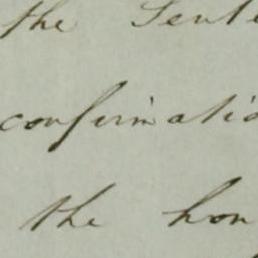 the Sente
confirmatio
the hon